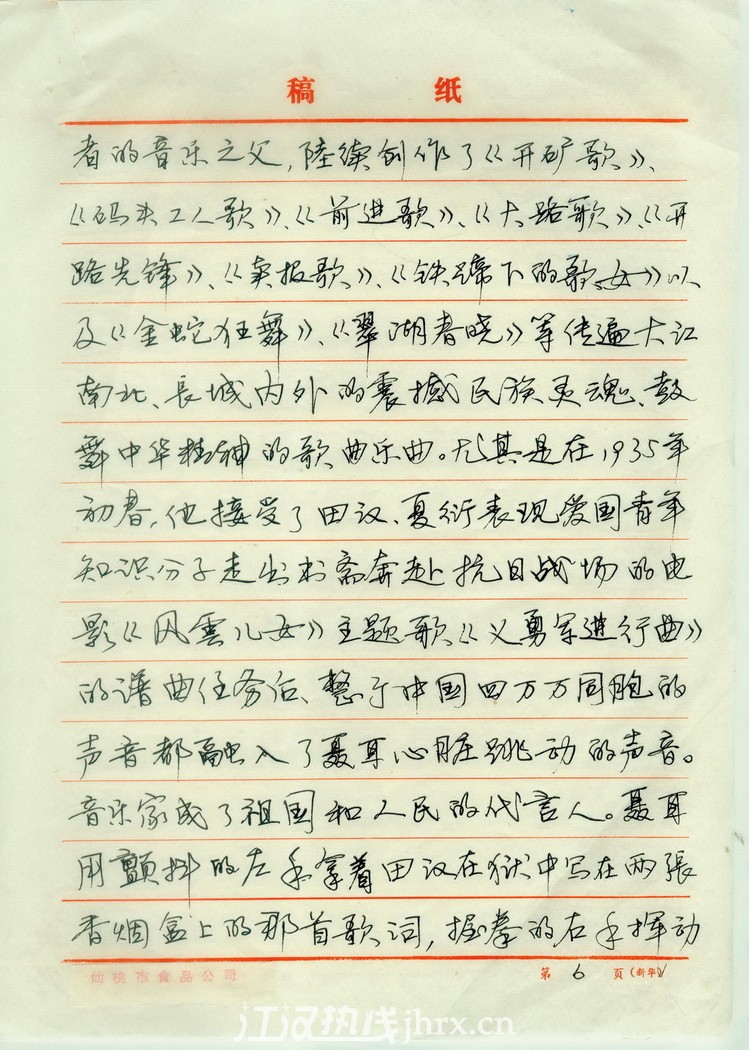 稿 纸
者的音乐之父，陸续创作了《开矿歌》、
《码头工人歌》、《前进歌》、《大路歌》、《开
路先锋》、《卖报歌》、《铁蹄下的歌女》以
及《金蛇狂舞》、《翠湖春晓》等传遍大江
南北、長城内外的震撼民族灵魂、鼓
舞中华精神的歌曲乐曲。尤其是在1935年
初春，他接受了田汉、夏衍表现爱国青年
知识分子走出书斋奔赴抗日战场的电
影《风雲儿女》主题歌《义勇军进行曲》
的谱曲任务后、整个中国四万万同胞的
声音都融入了聂耳心脏跳动的声音。
音乐家成了祖国和人民的代言人。聂耳
用颤抖的左手拿着田汉在狱中写在两張
香烟盒上的那首歌词，握拳的右手挥动
仙桃市食品公司 第 6 页（新华）
江汉热线jhrx.cn